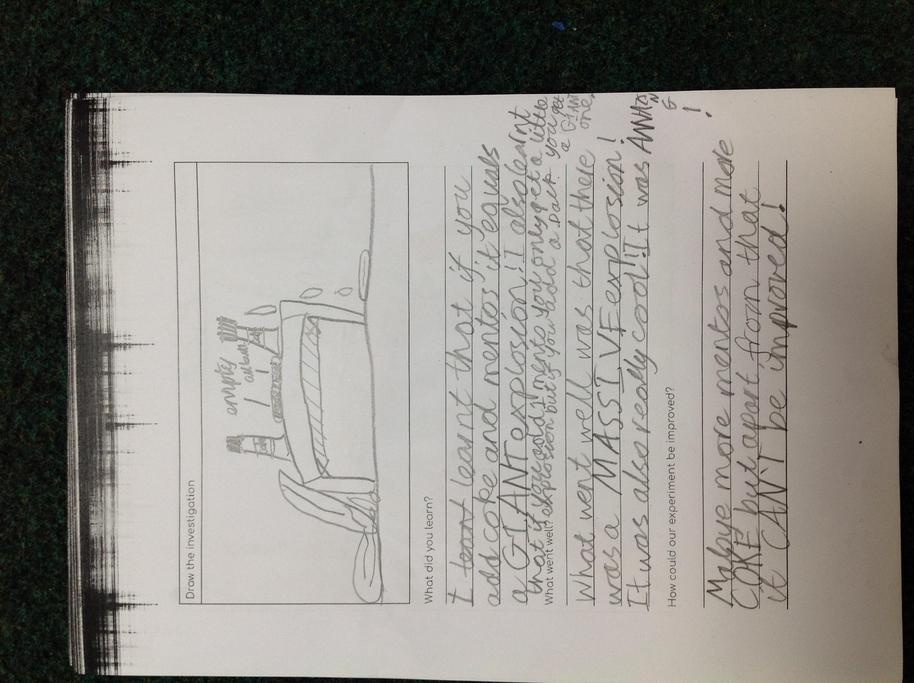 Draw the investigation
empty
What did you learn?
I learnt that if you
add coke and mentos it equals
a GIANT explosion! I also learnt
that if you add 1 mento you only get a little
explosion but if you add a pack you get
a GIANT
one.
What went well?
What went well was that there
was a MASSIVE explosion!
It was also really cool! It was
How could our experiment be improved?
Mabye more mentos and more
COKE but apart from that
it CAN'T be improved!